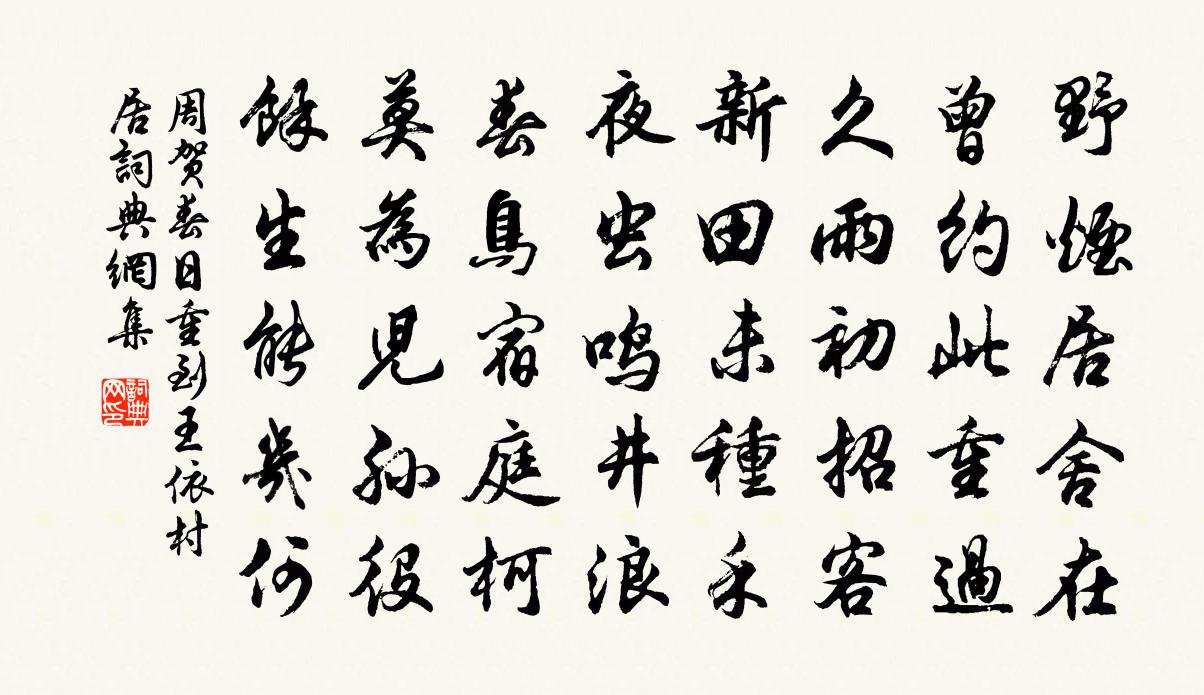 野煙居舍在
曾約此重過
久雨初招客
新田未種禾
夜虫鸣井浪
春鳥宿庭柯
莫為兒孫役
餘生能幾何
周贺春日重到王依村
居詞典網集
詞典
网印